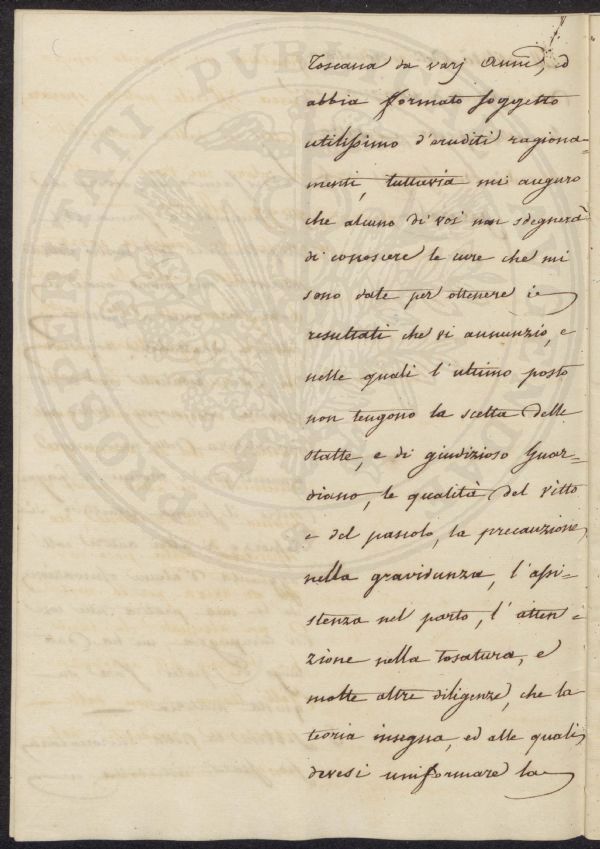 Toscana da varj Anni, ed
abbia formato soggetto
utilissimo d'eruditi ragiona=
menti, tuttavia mi auguro
che alcuno di voi non sdegnerà
di conoscere le cure che mi
sono date per ottenere i
resultati che vi annunzio, e
nelle quali l'ultimo posto
non tengono la scelta delle
stalle, e di giudizioso Guar=
diano, le qualità del vitto
e del pascolo, la precauzione
nella gravidanza, l'assi=
stenza nel parto, l'atten=
zione nella tosatura, e
molte altre diligenze, che la
teoria insegna, ed alle quali
devesi uniformare la
PROSPERITATI PUBLICAE